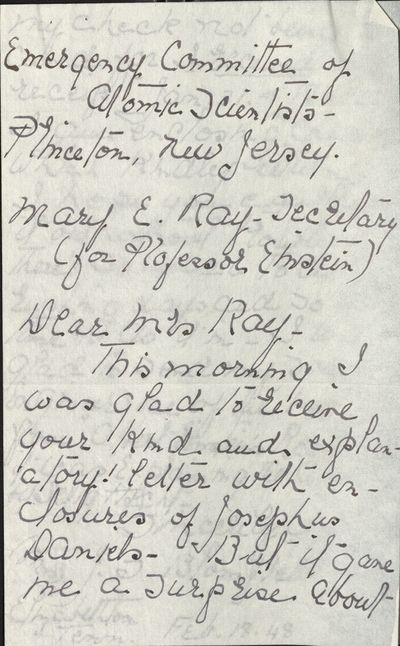 Emergency Committee of
Atomic Scientists-
Princeton, New Jersey.
Mary E. Ray- Secretary
(for Professor Einstein)
Dear Mrs Ray-
This morning I
was glad to receive
your kind and explan-
atory letter with en-
closures of Josephus
Daniels- But it gave
me a surprise about
Feb. 18. 48